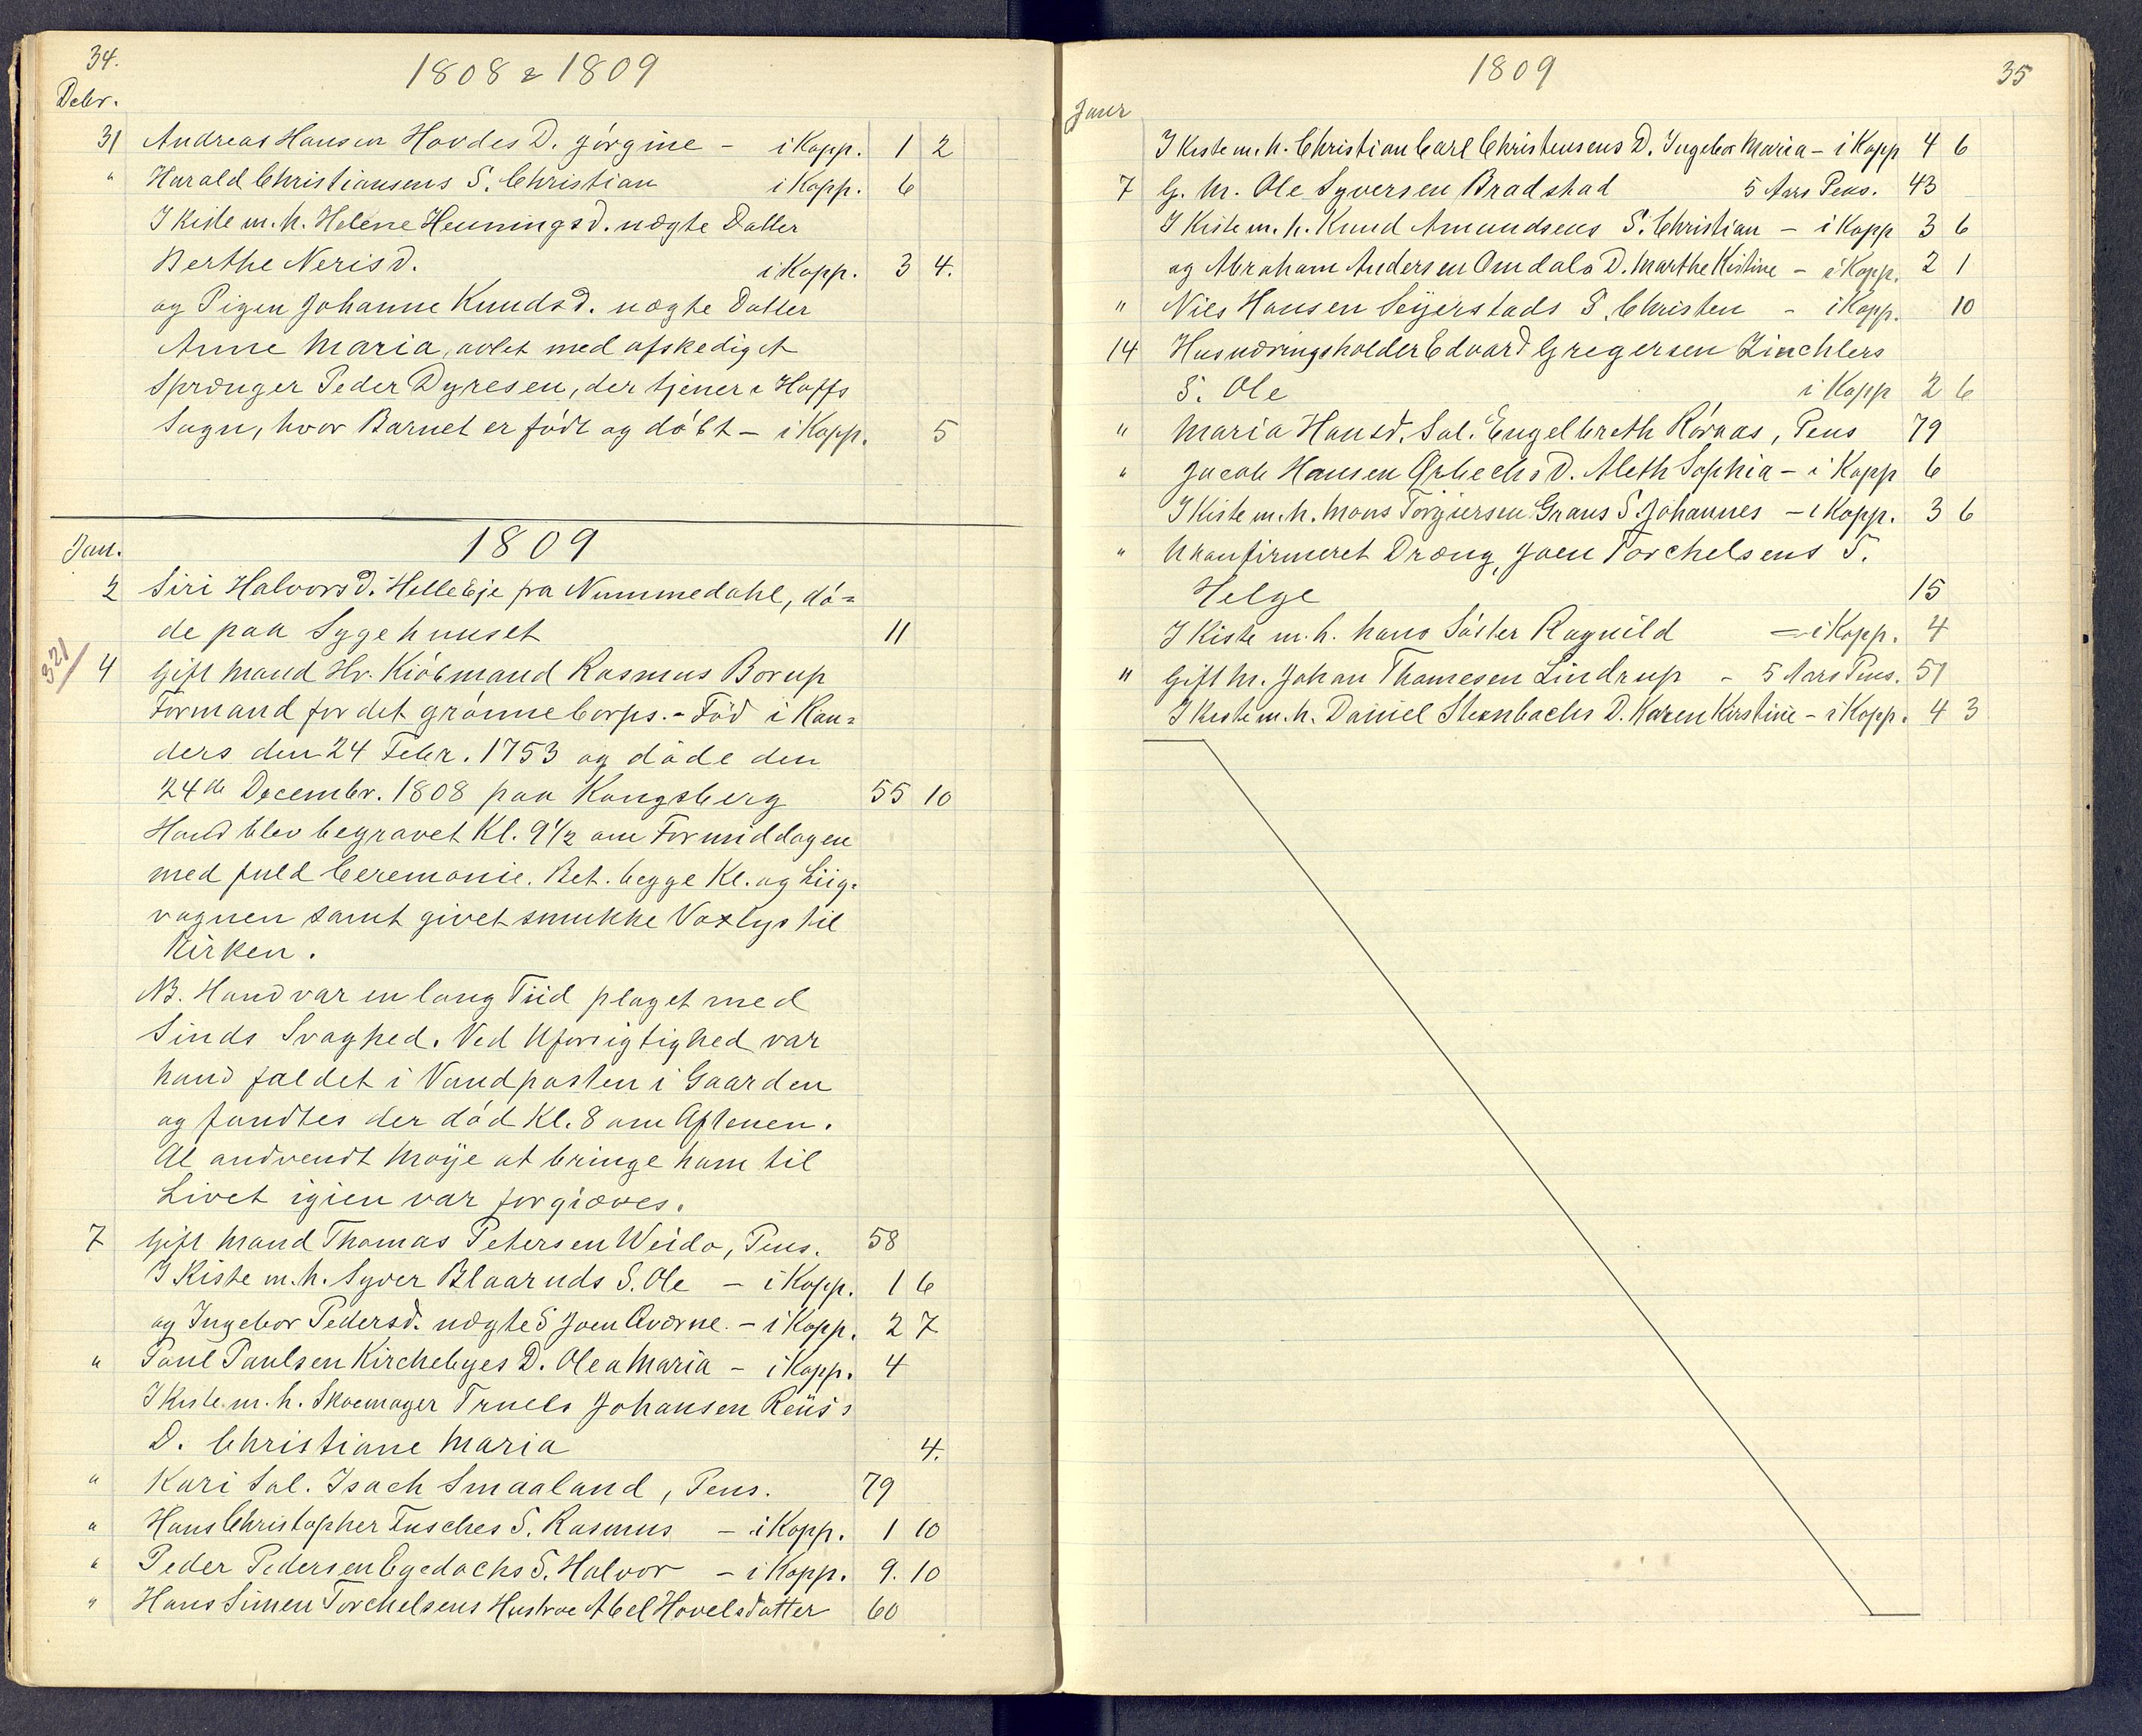 34.
1808 & 1809
Debr.
31 Andreas Hansen Hovdes D. Jørgine - i Kopp. 1 2
" Harald Christiansens S. Christian i Kopp. 6
I Kiste m. h. Helene Henningsd. uægte Datter
Berthe Nerisd. i Kopp. 3 4.
og Pigen Johanne Knudsd. uægte Datter
Anne Maria, avlet med afskediget
Sprænger Peder Dyresen, der tjener i Hoffs
Sogn, hvor Barnet er födt og döbt - i Kopp. 5
1809
Jan.
2 Siri Halvorsd. Helle Eje fra Nummedahl, dö=
de paa Sygehuuset 11
321/ 4 Gift Mand Hr. Kiöbmand Rasmus Borup
Formand for det grönne Corps. - Föd i Ran=
ders den 24 Febr. 1753 og döde den
24de Decembr. 1808 paa Kongsberg 55 10
Hand blev begravet Kl. 9½ om Formiddagen
med fuld Ceremonie. Bet. begge Kl. og Liig=
vognen samt givet smukke Voxlys til
Kirken.
NB. Hand var en lang Tiid plaget med
Sinds Svaghed. Ved Uforsigtighed var
hand faldet i Vandposten i Gaarden
og fandtes der död Kl. 8 om Aftenen.
Al andvendt Möye at bringe ham til
Livet igien var forgiæves.
7 Gift Mand Thomas Petersen Weida, Pens. 58
I Kiste m. h. Syver Blaaruds S. Ole - i Kopp. 1 6
og Ingebor Pedersd. uægte S Joen Qværne. - i Kopp. 2 7
" Paul Paulsen Kirchebyes D. Olea Maria - i Kopp. 4
I Kiste m. h. Skoemager Truels Johansen Reüs's
D. Christiane Maria 4.
" Kari Sal. Isach Smaaland, Pens. 79
" Hans Christopher Fusches S. Rasmus - i Kopp. 1 10
" Peder Pedersen Egedachs S. Halvor - i Kopp. 9. 10
" Hans Simen Torchelsens Hustroe Abel Hovelsdatter 60
1809
35
Januar
I Kiste m. h. Christian Carl Christensens D. Ingebor Maria - i Kopp 4 6
7 G. M. Ole Syversen Bradstad 5 Aars Pens. 43
I Kiste m. h. Knud Amundsens S. Christian - i Kopp 3 6
og Abraham Andersen Omdals D. Marthe Kistine - i Kopp. 2 1
" Niels Hansen Seyerstads S. Christen - i Kopp. 10
14 Husnæringsholder Edvard Gregersen Zinchlers
S. Ole i Kopp 2 6
" Maria Hansd. Sal. Engelbreth Röraas, Pens 79
" Jacob Hansen Ørbechs D. Aleth Sophia - i Kopp 6
I Kiste m. h. Mons Törgersen Graus S. Johannes - i Kopp. 3 6
" Ukonfirmeret Dræng, Joen Torchelsens S.
Helge 15
I Kiste m. h. hans Söster Ragnild - i Kopp. 4
" Gift M. Johan Thomesen Lindrup - 5 Aars Pens. 51
I Kiste m. h. Daniel Sternbachs D. Karen Kirstine - i Kopp. 4 3